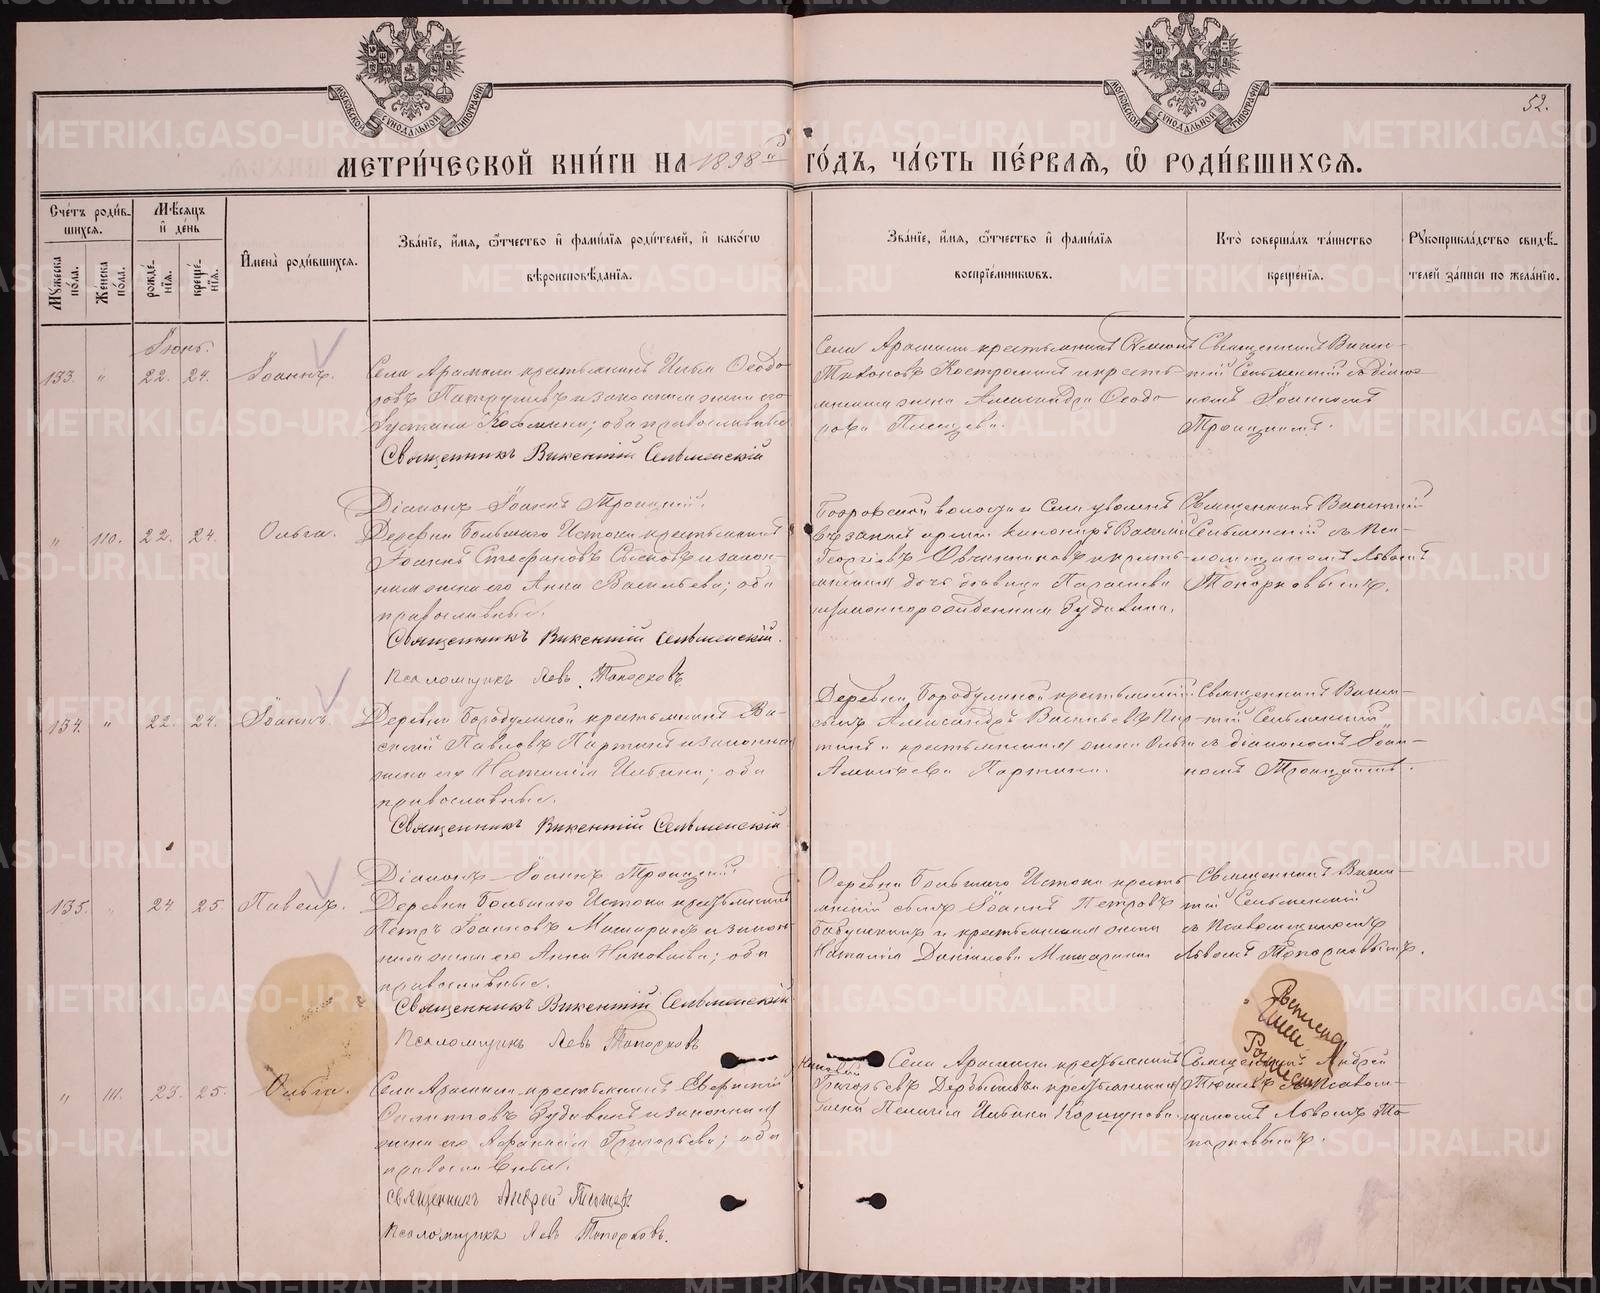 МОСКОВСКОЙ СѴНОДАЛЬНОЙ ТИПОГРАФІИ
МОСКОВСКОЙ СѴНОДАЛЬНОЙ ТИПОГРАФІИ
52.
МЕТРИ́ЧЕСКОЙ КНИ́ГИ НА 1898й ГО́ДЪ, ЧА́СТЬ ПЕ́РВАѦ, Ѽ РОДИ́ВШИХСѦ.
Сче́тъ роди́в-
шихсѧ.
Мꙋжеска по́ла.
Же́нска по́ла.
Мѣ́сѧцъ и҆ де́нь
рожде́нїѧ.
креще́нїѧ.
И҆мена̀ роди́вшихсѧ.
Зва́нїе, и҆́мѧ, ѻ҆́тчество и҆ фами́лїѧ роди́телей, и҆ како́гѡ
вѣроисповѣ́данїѧ.
Зва́нїе, и҆́мѧ, ѻ҆́тчество и҆ фами́лїѧ
воспрїе́мникѡвъ.
Кто̀ соверша́лъ та́инство
креще́нїѧ.
Рꙋкоприкла́дство свидѣ́-
телей за́писи по жела́нїю.
Іюнь.
133. " 22. 24. Іоаннъ.
Села Арамили крестьянинъ Илья Ѳеодо-
ровъ Патрушевъ и законная жена его
Іустина Козьмина; оба православные
Священникъ Викентій Сельменскій
Діаконъ Іоаннъ Троицкій.
Села Арамили крестьянинъ
Тихоновъ Костроминъ и кресть-
янская жена Александра Ѳеодо-
рова
Священникъ Викен-
тій Сельменскій съ діако-
номъ Іоанномъ
Троицкимъ.
" 110. 22. 24. Ольга.
Деревни Большаго Истока крестьянинъ
Іоаннъ Стефановъ и закон-
ная жена его Анна Васильева; оба
православные.
Священникъ Викентій Сельменскій.
Псаломщикъ Левъ Топорковъ
волости и села уволенн
въ запасъ арміи Василій
Георгіевъ Овчинниковъ и кресть-
янская дочь дѣвица
Священникъ Викентій
Сельменскій съ Пса-
ломщикомъ Львомъ
Топорковымъ.
134. " 22. 24. Іоаннъ
Деревни Бородулиной крестьянинъ Ва-
силій Павловъ Партинъ и законная
жена его Наталія Ильина; оба
православные.
Священникъ Викентій Сельменскій
Діаконъ Іоаннъ Троицкій.
Деревни Бородулиной крестьянскій
сынъ Александръ Васильевъ Пар-
тинъ и крестьянская жена Ольга
Алексѣева Партина.
Священникъ Викен-
тій Сельменскій
съ діакономъ Іоан-
номъ Троицкимъ.
135. " 24 25 Павелъ.
Деревни Большаго Истока крестьянинъ
Петръ Іоанновъ Машаринъ и закон-
ная жена его Анна; оба
православные.
Священникъ Викентій Сельменскій
Псаломщикъ Левъ Топорковъ
Деревни Большаго Истока кресть-
янскій сынъ Іоаннъ Петровъ
Бабушкинъ и крестьянская жена
Наталія Даніилова Машарина
Священникъ Викен-
тій Сельменскій
съ Псаломщикомъ
Львомъ Топорковымъ.
" 111. 23. 25. Ольга.
Села Арамили крестьянинъ
Филипповъ и законная
жена его Григорьева; оба
православные.
Священникъ Андрей Тюшевъ
Псаломщикъ Левъ Топорковъ.
Села Арамили крестьянинъ
Григорьевъ и крестьянская
жена Пелагія Ильина Коршунова.
Священникъ Андрей
Тюшевъ съ псалом-
щикомъ Львомъ То-
порковымъ.
METRIKI.GASO-URAL.RU